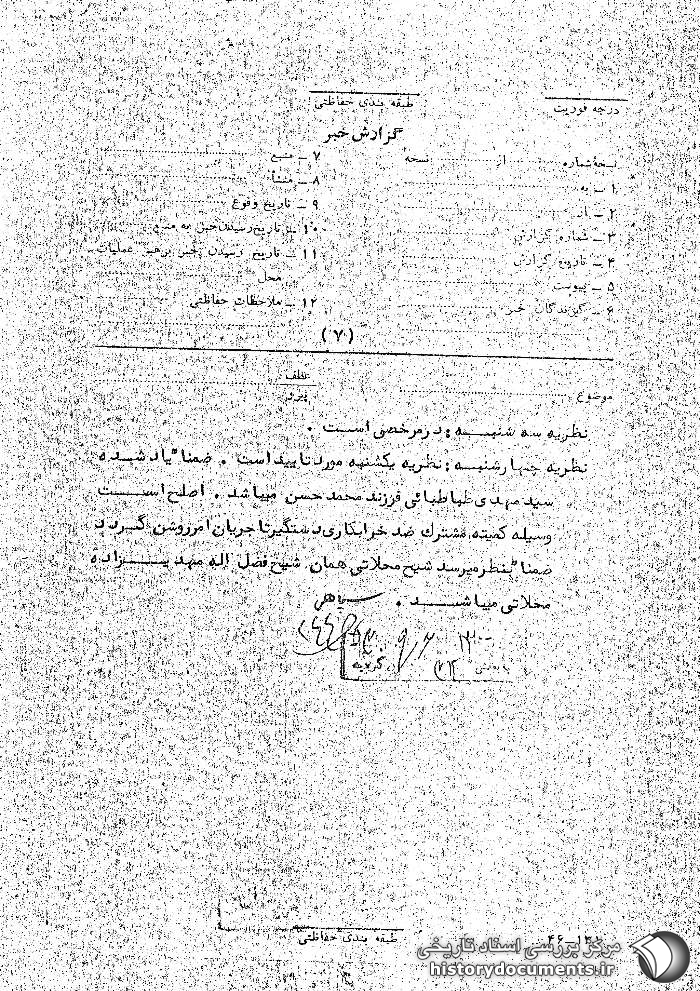 درجه فوریت
طبقه بندی حفاظتی
گزارش خبر
نسخهٔ شماره از نسخه
۱ ــ به
۲ ــ از
۳ ــ شماره گزارش
۴ ــ تاریخ گزارش
۵ ــ پیوست
۶ ــ گیرندگان خبر
۷ ــ منبع
۸ ــ منشأ
۹ ــ تاریخ وقوع
۱۰ ــ تاریخ رسیدن خبر به منبع
۱۱ ــ تاریخ رسیدن خبر برهبر عملیات
محل
۱۲ ــ ملاحظات حفاظتی
(۷)
موضوع
عطف
پیرو
نظریه سه شنبـــه : درمرخصی اســت .
نظریه چهارشنبـه : نظریه یکشنبه مورد تایید است . ضمنا" یاد شـده
سید مهدی طباطبائی فرزند محمد حسن میباشد . اصلح اســـت
وسیله کمیته مشترك ضد خرابکاری دستگیر تا جریان امر روشن گـردد
ضمنا" بنظر میرسد شیخ محلاتی همان شیخ فضل اله مهد یـــزاده
محلاتی میباشـــد .
طبقه بندی حفاظتی
مرکز بررسی اسناد تاریخی
historydocuments.ir